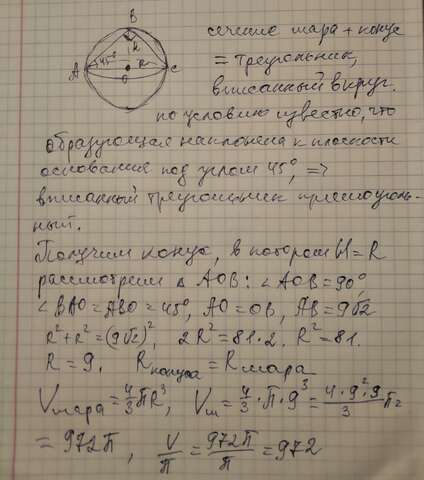 B
сечение шара + конус
45°
R
A
O
R
C
= треугольник,
вписанный в круг.
по условию известно, что
образующая наклонена к плоскости
основания под углом 45°, =>
вписанный треугольник прямоуголь-
ный.
Получим конус, в котором H = R
рассмотрим △ AOB: ∠AOB = 90°
∠BAO = ABO = 45°, AO = OB, AB = 9√2
R² + R² = (9√2)², 2R² = 81·2. R² = 81.
R = 9. Rконуса = Rшара
Vшара = 4/3 πR³, Vш = 4/3 · π · 9³ = 4·9²·9/3 π =
= 972π, V/π = 972π/π = 972